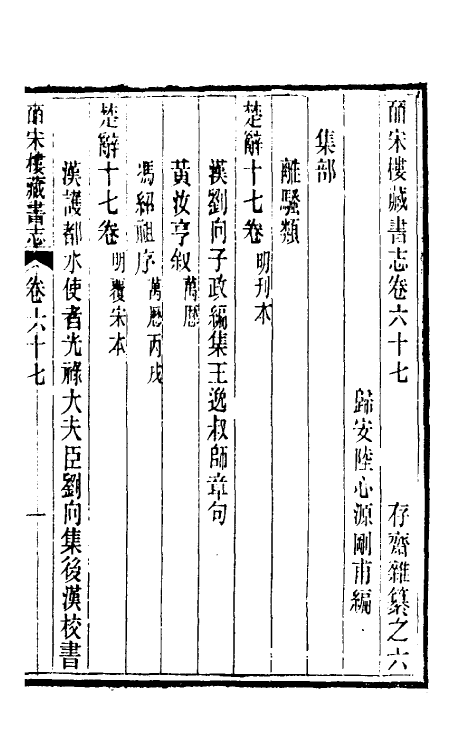 皕宋樓藏書志卷六十七　存齋雜纂之六
歸安陸心源剛甫編
集部
離騷類
楚辭十七卷 明刊本
漢劉向子政編集王逸叔師章句
黃汝亨叙 萬曆
馮紹祖序 萬曆丙戌
楚辭十七卷 明覆宋本
漢護都水使者光祿大夫臣劉向集後漢校書
皕宋樓藏書志 卷六十七 一